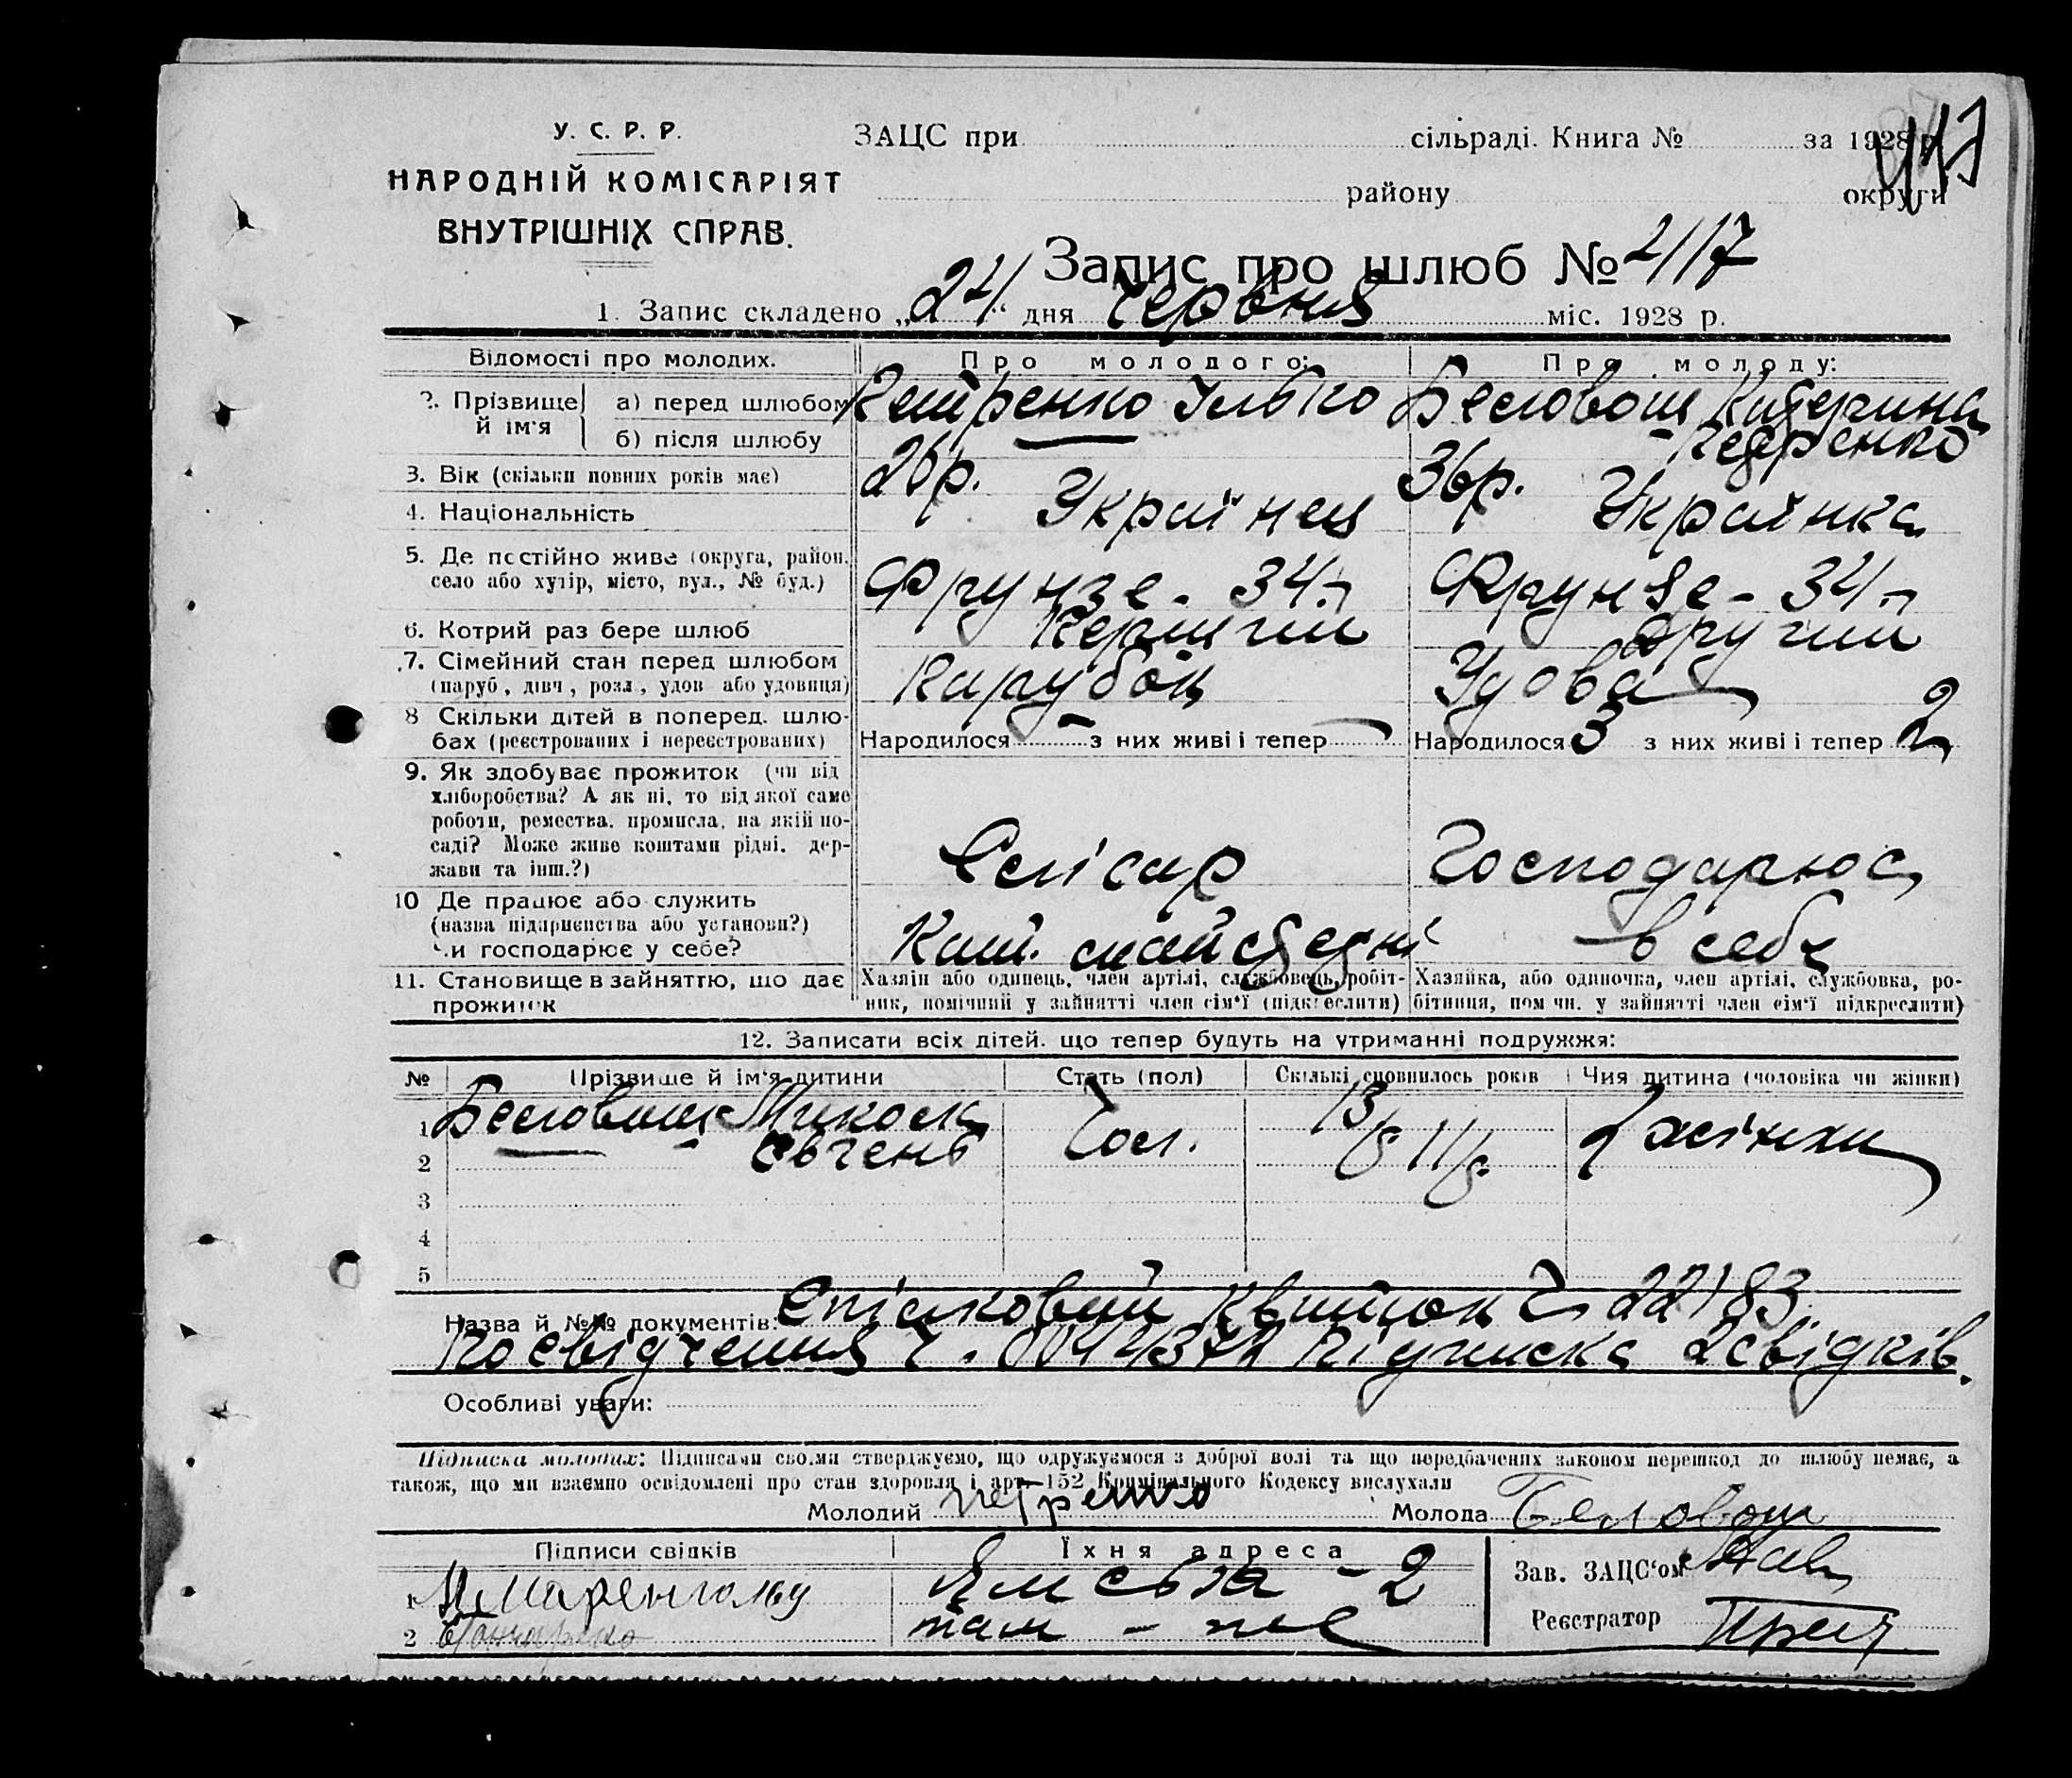 У. С. Р. Р.
НАРОДНІЙ КОМІСАРІЯТ
ВНУТРІШНІХ СПРАВ.
ЗАЦС при сільраді. Книга № за 1928 р.
району округи
Запис про шлюб № 417
1. Запис складено „24“ дня Червня міс. 1928 р.
Відомості про молодих. Про молодого: Про молоду:
2. Прізвище й ім'я
а) перед шлюбом Петренко Ілько Катерина
б) після шлюбу - Петренко
3. Вік (скільки повних років має) 26р. 36р.
4. Національність Українец Українка
5. Де постійно живе (округа, район, село або хутір, місто, вул., № буд.) Фрунзе - 34 Фрунзе - 34
6. Котрий раз бере шлюб Перший другий
7. Сімейний стан перед шлюбом (паруб., дівч., розл., удов або удовиця) Парубок Удова
8 Скільки дітей в поперед. шлюбах (реєстрованих і нереєстрованих) Народилося - з них живі і тепер - Народилося 3 з них живі і тепер 2
9. Як здобуває прожиток (чи від хліборобства? А як ні, то від якої саме роботи, ремества, промисла, на якій посаді? Може живе коштами рідні, держави та інш.?) Слісар Господарює
10 Де працює або служить (назва підприємства або установи?) Чи господарює у себе? в себе
11. Становище в зайняттю, що дає прожиток
Хазяїн або одинець, член артілі, службовець, робітник, помічний у зайнятті член сім'ї (підкреслити)
Хазяйка, або одиночка, член артілі, службовка, робітниця, помічн. у зайнятті член сім'ї підкреслити)
12. Записати всіх дітей, що тепер будуть на утриманні подружжя:
№ Прізвище й ім'я дитини Стать (пол) Скількі сповнилось років Чия дитина (чоловіка чи жінки)
1 Микола Чол. 13 жінки
2 Євгень 11
3
4
5
Назва й №№ документів: Спілковий квиток Ч 22183
Посвідчення ч. Підписка 2 свідків.
Особливі уваги:
Підписка молодих: Підписами своїми стверджуємо, що одружуємося з доброї волі та що передбачених законом перешкод до шлюбу немає, а
також, що ми взаємно освідомлені про стан здоровля і арт. 152 Кримінального Кодексу вислухали
Молодий Петренко Молода
Підписи свідків Їхня адреса
1 - 2
2 Гончаренко там - же
Зав. ЗАЦС'ом
Реєстратор